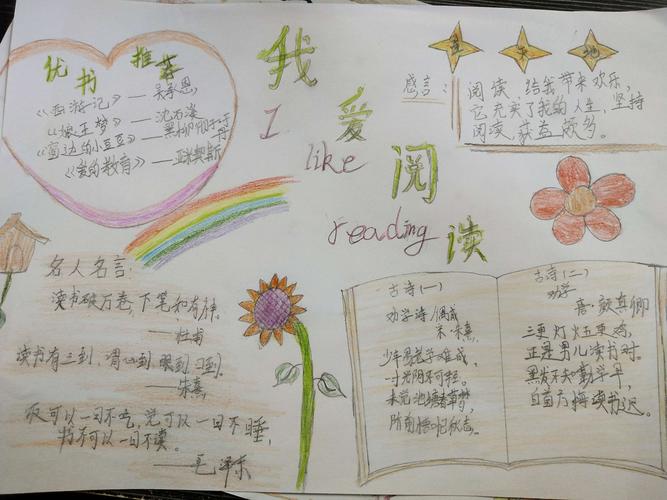 优书 推荐
《西游记》——吴承恩
《狼王梦》——沈石溪
《窗边的小豆豆》——黑柳彻子
《爱的教育》——亚米契斯
我爱阅读
I like reading
天地
感言：
阅读，给我带来欢乐，
它充实了我的人生，坚持
阅读，获益颇多。
名人名言：
读书破万卷，下笔如有神。
——杜甫
读书有三到，谓心到 眼到 口到。
——朱熹
饭可以一日不吃，觉可以一日不睡，
书不可以一日不读。
——毛泽东
古诗(一)
劝学诗/偶成
宋·朱熹
少年易老学难成，
一寸光阴不可轻。
未觉池塘春草梦，
阶前梧叶已秋声。
古诗(二)
劝学
唐·颜真卿
三更灯火五更鸡，
正是男儿读书时。
黑发不知勤学早，
白首方悔读书迟。